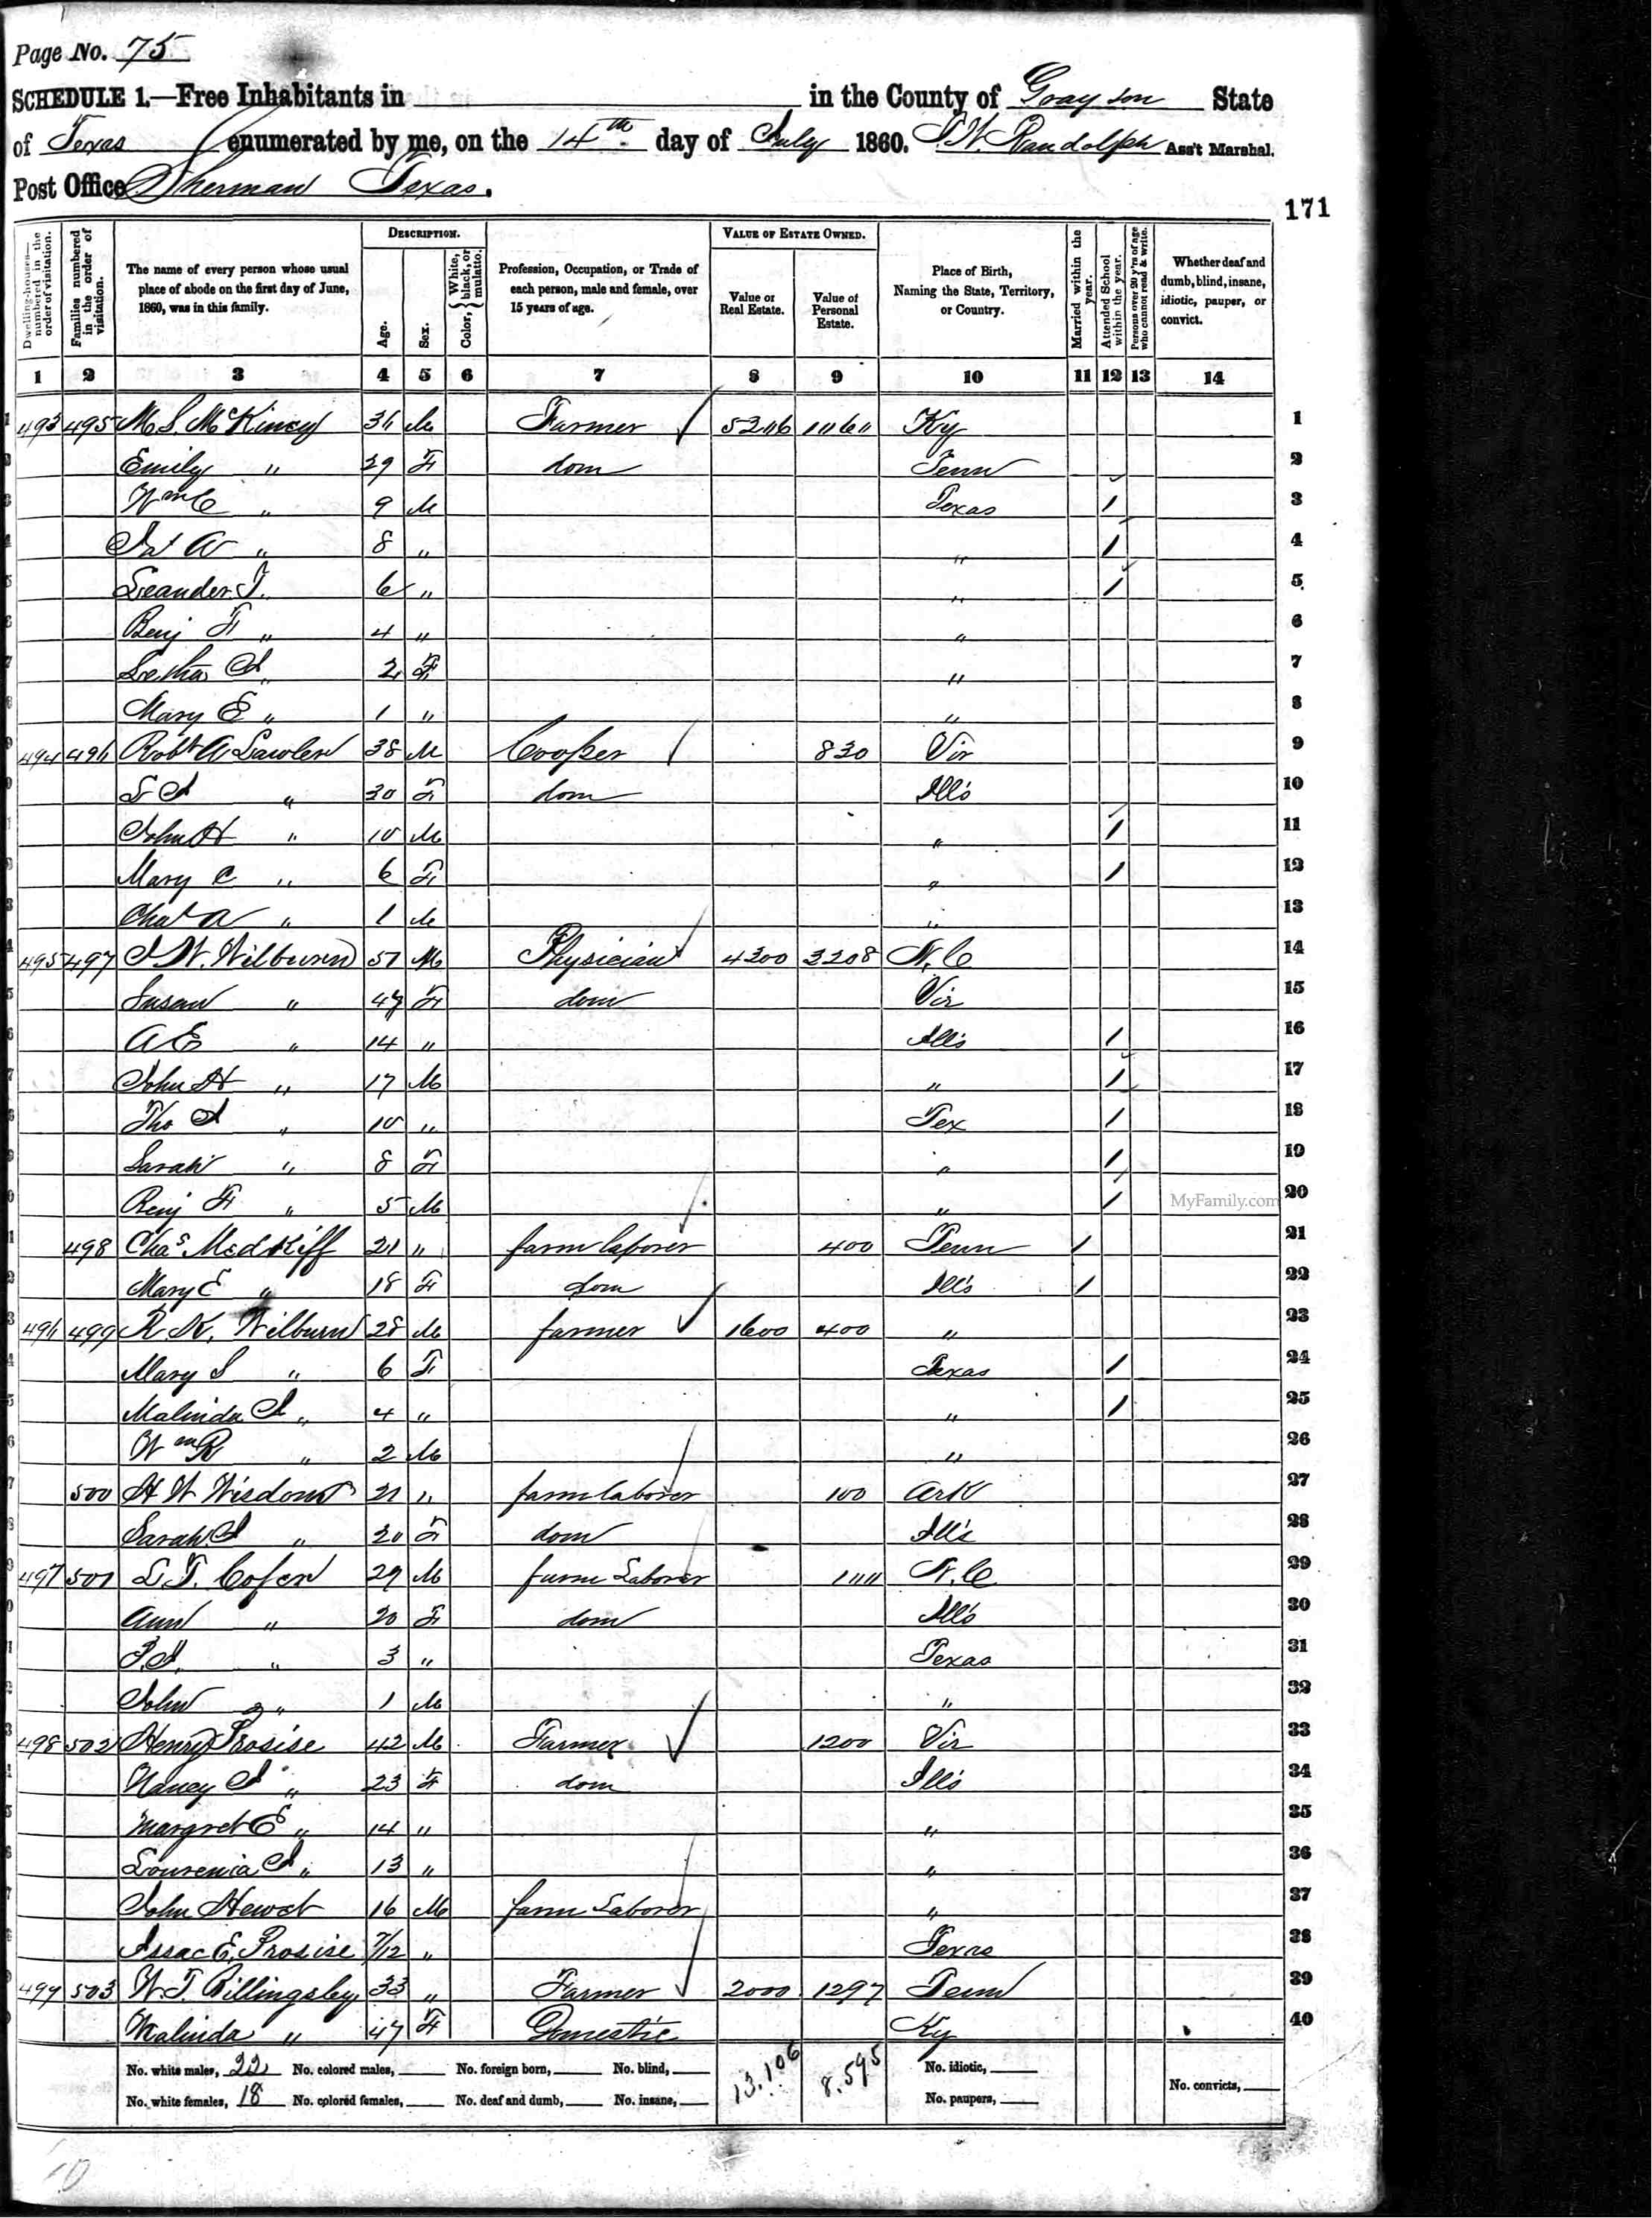 Page No. 75
SCHEDULE 1.—Free Inhabitants in in the County of Grayson State
of Texas enumerated by me, on the 14th day of July 1860. Randolph Ass't Marshal.
Post Office Sherman Texas.
171
Dwelling-houses—numbered in the order of visitation.
Families numbered in the order of visitation.
The name of every person whose usual place of abode on the first day of June, 1860, was in this family.
DESCRIPTION.
Age.
Sex.
Color, { White, black, or mulatto.
Profession, Occupation, or Trade of each person, male and female, over 15 years of age.
VALUE OF ESTATE OWNED.
Value of Real Estate.
Value of Personal Estate.
Place of Birth, Naming the State, Territory, or Country.
Married within the year.
Attended School within the year.
Persons over 20 y'rs of age who cannot read & write.
Whether deaf and dumb, blind, insane, idiotic, pauper, or convict.
1 2 3 4 5 6 7 8 9 10 11 12 13 14
493 495 M. S. McKiney 36 M Farmer Ky 1
Emily " 29 F dom Tenn 2
Wm C " 9 M Texas 1 3
A " 8 " " 1 4
Leander 6 " " 1 5
Benj F " 4 " " 6
2 F " 7
Mary E " 1 " " 8
494 496 Robt A Lawler 38 M Cooper 830 Vir 9
30 F dom Ills 10
John H " 10 M " 1 11
Mary C " 6 F " 1 12
Chas A " 1 M " 13
495 497 W. Wilburn 51 M Physician 4300 3208 N.C 14
Susan " 47 F dom Vir 15
A E " 14 " Ills 1 16
John H " 17 M " 1 17
Tho " 10 " Tex 1 18
Sarah " 8 F " 1 19
Benj F " 5 M " 1 MyFamily.com 20
498 Chas Medkiff 21 " farm laborer 400 Tenn 1 21
Mary E " 18 F dom Ills 1 22
496 499 R. K. Wilburn 28 M farmer 1600 400 " 23
Mary " 6 F Texas 1 24
Malinda " 4 " " 1 25
Wm R " 2 M " 26
500 H W Wisdom 21 " farm laborer 100 Ark 27
Sarah " 20 F dom Ills 28
497 501 L. T. Cofer 29 M farm Laborer N.C 29
Ann " 20 F dom Ills 30
" 3 " Texas 31
John " 1 M " 32
498 502 Henry Prosise 42 M Farmer 1200 Vir 33
Nancy " 23 F dom Ills 34
Margret E " 14 " " 35
Lourenia " 13 " " 36
John 16 M farm Laborer " 37
Issac E. Prosise 7/12 " Texas 38
499 503 W. T. Billingsley 33 " Farmer 2000 1297 Tenn 39
Malinda " 47 F Domestic Ky 40
No. white males, 22 No. colored males, No. foreign born, No. blind, 13.106 8.595 No. idiotic,
No. white females, 18 No. colored females, No. deaf and dumb, No. insane, No. paupers, No. convicts,